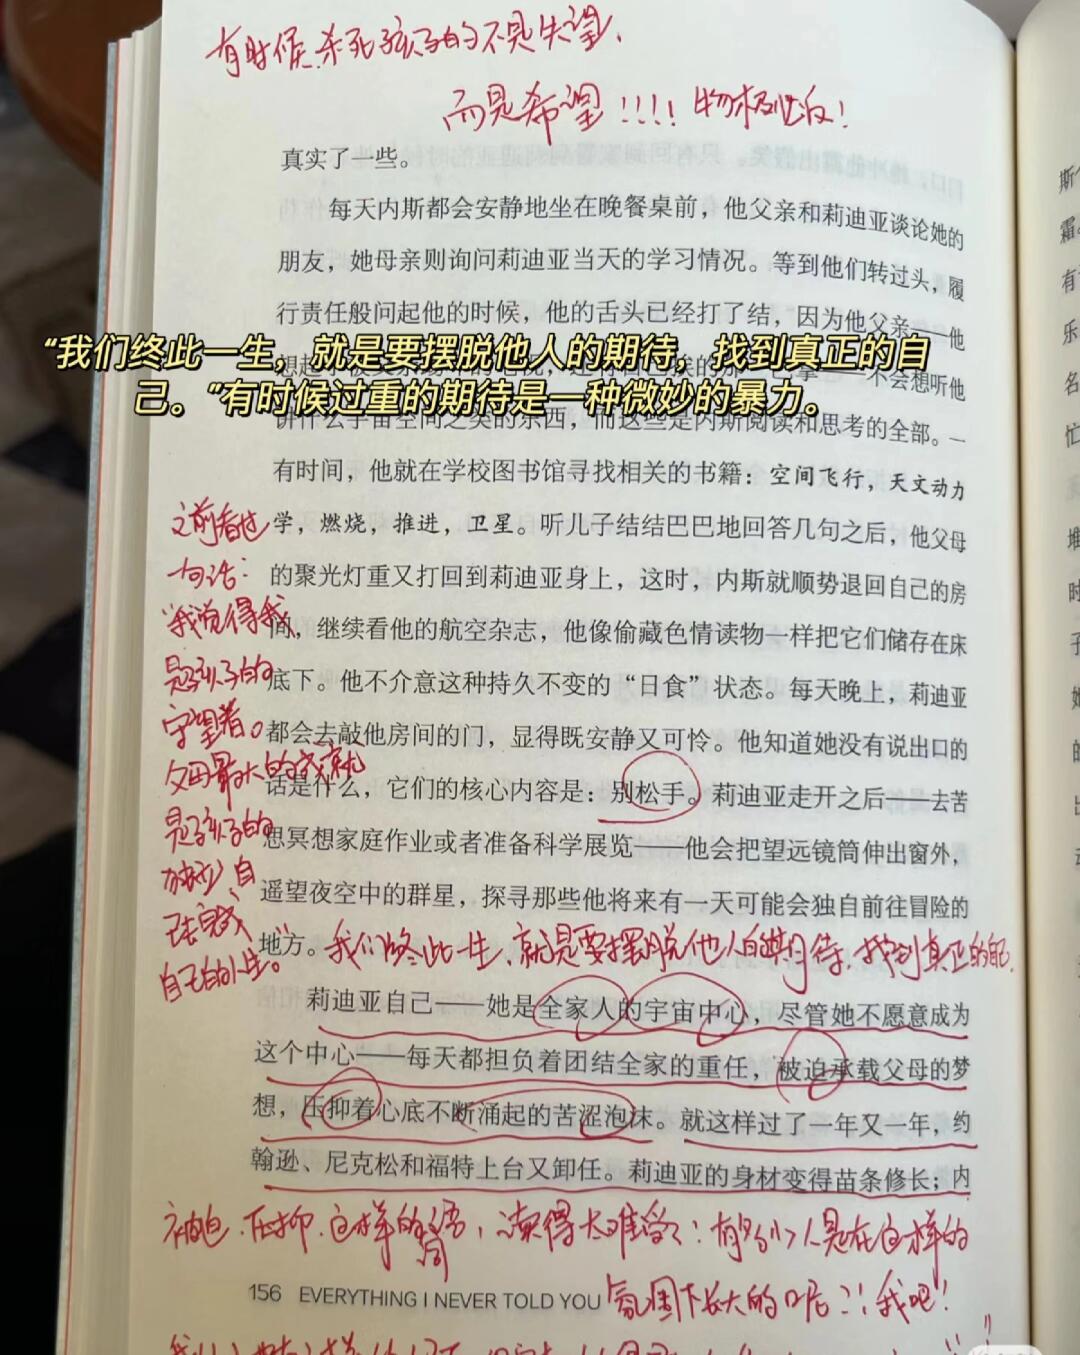 有时候杀死孩子的不是失望,
而是希望!!!! 物极必反!
真实了一些。
每天内斯都会安静地坐在晚餐桌前，他父亲和莉迪亚谈论她的
朋友，她母亲则询问莉迪亚当天的学习情况。等到他们转过头，履
行责任般问起他的时候，他的舌头已经打了结，因为他父亲——他
“我们终此一生，就是要摆脱他人的期待，找到真正的自
己。”有时候过重的期待是一种微妙的暴力。
不会想听他
讲什么宇宙空间之类的东西，而这些是内斯阅读和思考的全部。一
有时间，他就在学校图书馆寻找相关的书籍：空间飞行，天文动力
学，燃烧，推进，卫星。听儿子结结巴巴地回答几句之后，他父母
的聚光灯重又打回到莉迪亚身上，这时，内斯就顺势退回自己的房
间，继续看他的航空杂志，他像偷藏色情读物一样把它们储存在床
底下。他不介意这种持久不变的“日食”状态。每天晚上，莉迪亚
都会去敲他房间的门，显得既安静又可怜。他知道她没有说出口的
话是什么，它们的核心内容是：别松手。莉迪亚走开之后——去苦
思冥想家庭作业或者准备科学展览——他会把望远镜筒伸出窗外，
遥望夜空中的群星，探寻那些他将来有一天可能会独自前往冒险的
地方。
之前看过
一句话：
“我觉得我
是孩子的
守望者。
父母最大的成就
是孩子的
独立、自
己去完成
自己的人生。”
我们终此一生、就是要摆脱他人的期待，找到真正的自己.
莉迪亚自己——她是全家人的宇宙中心，尽管她不愿意成为
这个中心——每天都担负着团结全家的重任，被迫承载父母的梦
想，压抑着心底不断涌起的苦涩泡沫。就这样过了一年又一年，约
翰逊、尼克松和福特上台又卸任。莉迪亚的身材变得苗条修长；内
被迫、压抑、这样的词语，读得太难受了：有多少人是在这样的
氛围下长大的呢?!我吧!
156 EVERYTHING I NEVER TOLD YOU